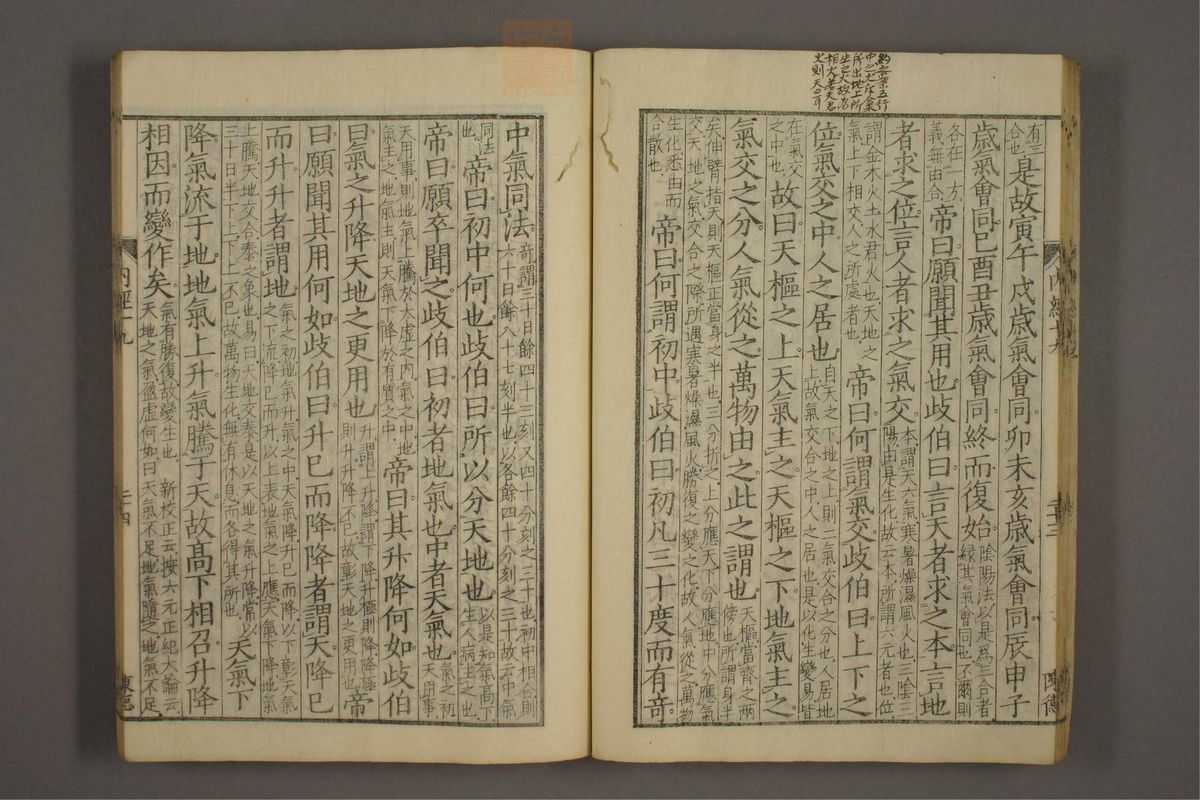 約之案五行
所出地上所
生之火故為
有三合也是故寅午戌歲氣會同卯未亥歲氣會同辰申子
歲氣會同巳酉丑歲氣會同終而復始陰陽法以是為三合者緣其氣會同也不爾則
各在一方義無由合帝曰願聞其用也歧伯曰言天者求之本言地
者求之位言人者求之氣交本謂天六氣寒暑燥濕風火也三陰三陽由是生化故云本所謂六元者也位
謂金木火土水君火也天地之氣上下相交人之所處者也帝曰何謂氣交歧伯曰上下之
位氣交之中人之居也自天之下地之上則二氣交合之分也人居地上故氣交合之中人之居也是以化生變易皆
在氣交之中也故曰天樞之上天氣主之天樞之下地氣主之
氣交之分人氣從之萬物由之此之謂也天樞當齊之兩傍也所謂身半
矣伸臂指天則天樞正當身之半也三分折之上分應天下分應地中分應氣交天地之氣交合之際所遇寒暑燥濕風火勝復之變之化故人氣從之萬物
生化悉由而合散也帝曰何謂初中歧伯曰初凡三十度而有奇
內經十九
二十三
中氣同法奇謂三十日餘四十三刻又四十分刻之三十也初中相合則六十日餘八十七刻半也以各餘四十分刻之三十故云中氣
同法也帝曰初中何也歧伯曰所以分天地也以是知氣高下生人病主之也
帝曰願卒聞之歧伯曰初者地氣也中者天氣也氣之初天用事
天用事則地氣上騰於太虛之內氣之中地氣主之地氣主則天氣下降於有質之中帝曰其升降何如歧伯
曰氣之升降天地之更用也升謂上升降謂下降升極則降降極則升升降不已故彰天地之更用也帝
曰願聞其用何如歧伯曰升已而降降者謂天降已
而升升者謂地氣之初地氣升氣之中天氣降升已而降以下彰天氣之下流降已而升以上表地氣之上應天氣下降地氣
上騰天地交合泰之象也易曰天地交泰是以天地之氣升降常以三十日半下上下上不已故萬物生化無有休息而各得其所也天氣下
降氣流于地地氣上升氣騰于天故高下相召升降
相因而變作矣氣有勝復故變生也新校正云按六元正紀大論云天地之氣盈虛何如曰天氣不足地氣隨之地氣不足
內經十九
二十四